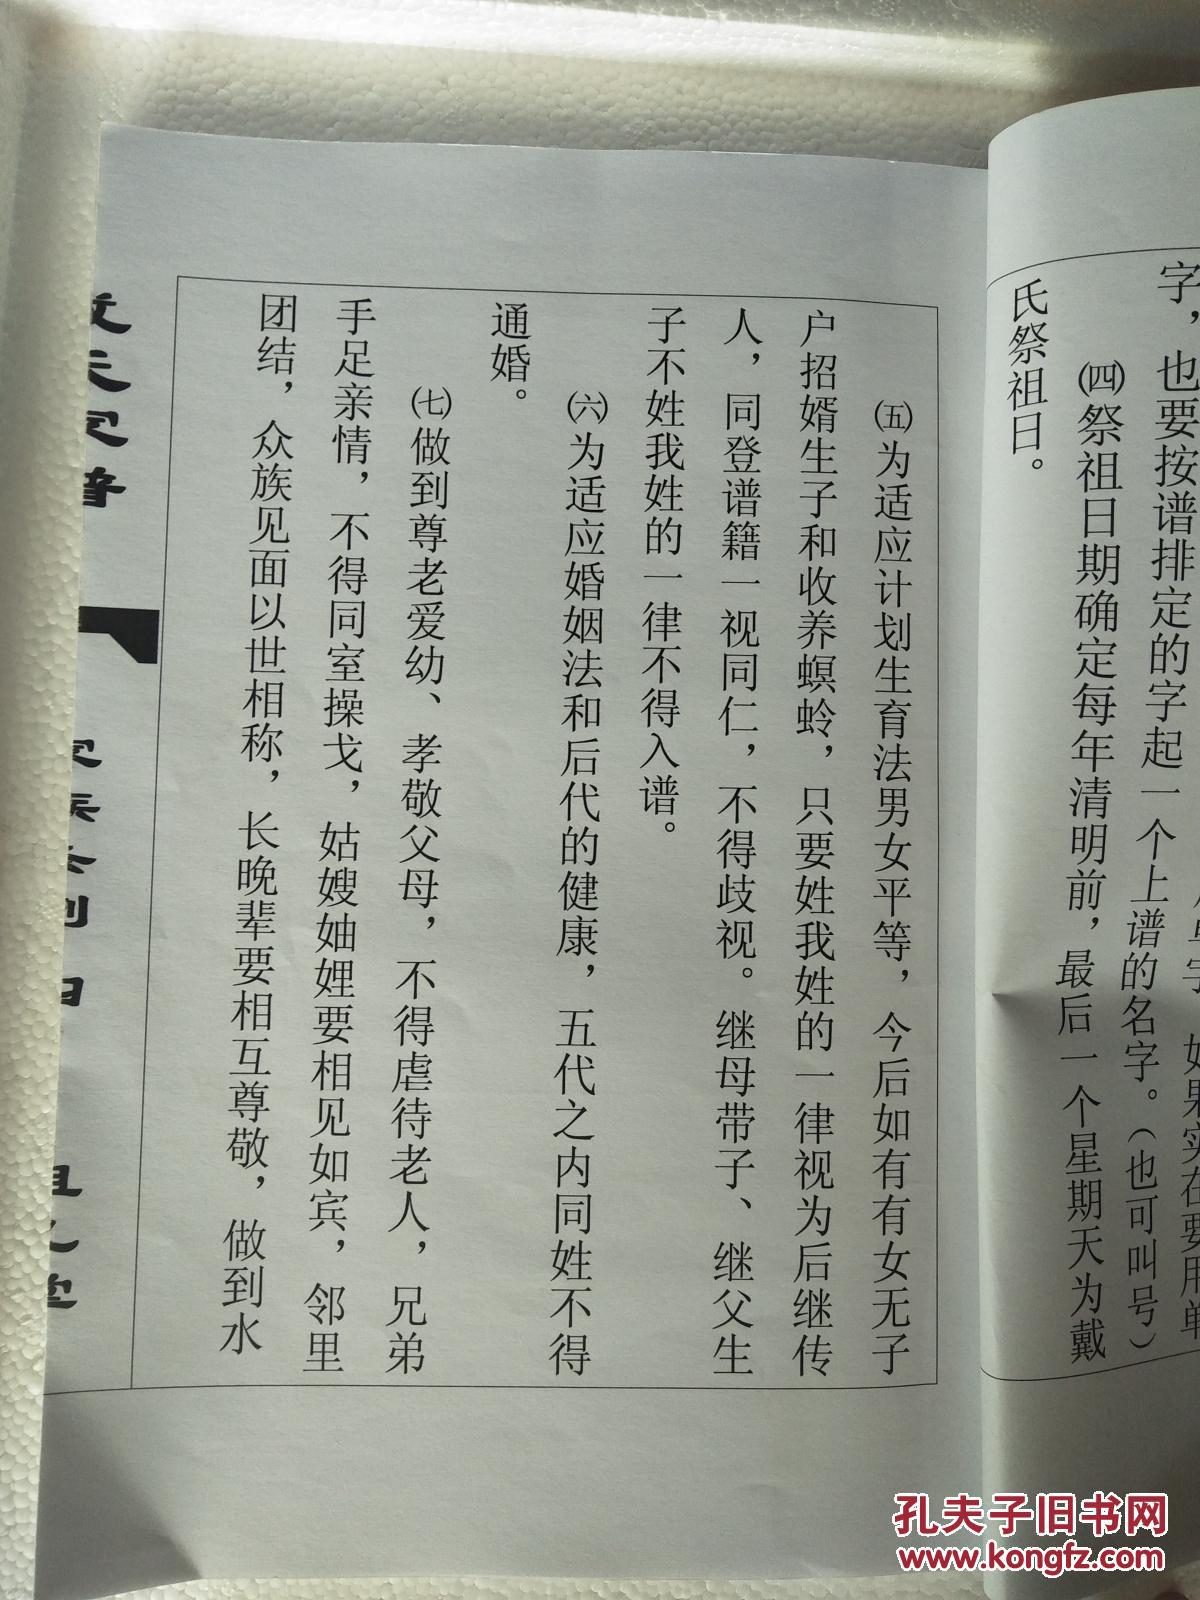 字，也要按谱排定的字起一个上谱的名字。（也可叫号）
㈣祭祖日期确定每年清明前，最后一个星期天为戴
氏祭祖日。
㈤为适应计划生育法男女平等，今后如有有女无子
户招婿生子和收养螟蛉，只要姓我姓的一律视为后继传
人，同登谱籍一视同仁，不得歧视。继母带子、继父生
子不姓我姓的一律不得入谱。
㈥为适应婚姻法和后代的健康，五代之内同姓不得
通婚。
㈦做到尊老爱幼、孝敬父母，不得虐待老人，兄弟
手足亲情，不得同室操戈，姑嫂妯娌要相见如宾，邻里
团结，众族见面以世相称，长晚辈要相互尊敬，做到水
孔夫子旧书网
www.kongfz.com